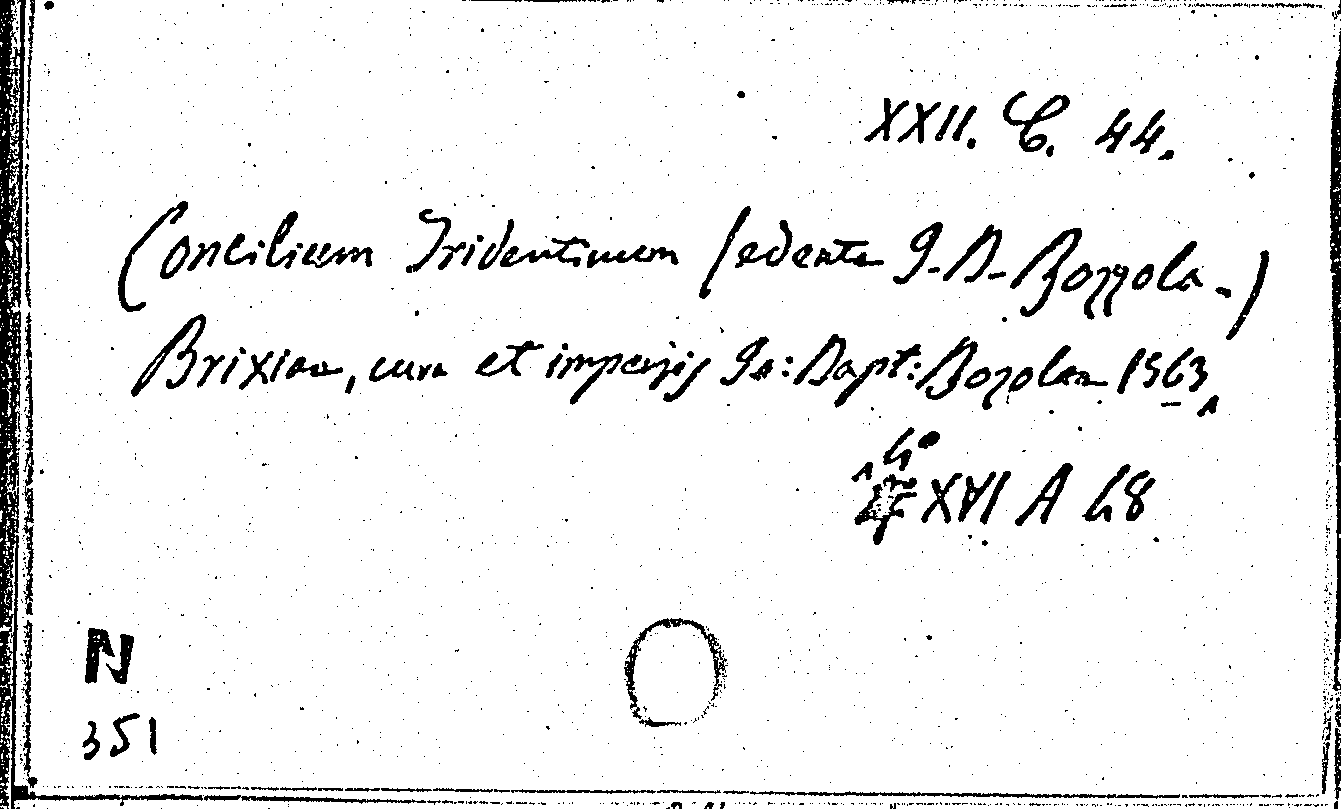 XXII. C. 44.
(Concilium Tridentinum (edente J. B. Bozzola.)
Brixiae, cura et impensis Jo: Bapt: Bozolae 1563
4° XVI A 48
N
351